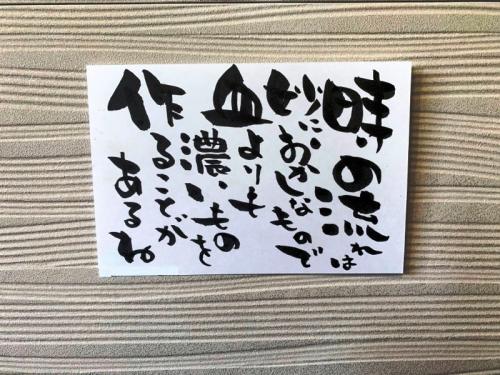 時の流れは
妙におかしなもので
血よりも
濃いものを
作ることが
あるね